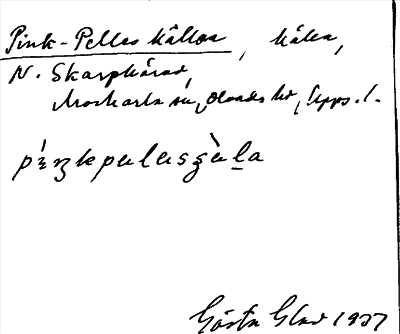 Pink-Pelles källan, källa,
N. Skarphärad,
Morkarla sn, Olands hd, Upps. l.
Gösta Glad 1937